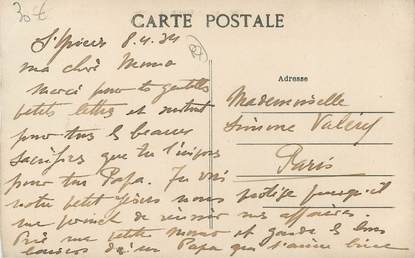 30€
CARTE POSTALE
St Yrieix 8.4.34
ma chère Momo
merci pour ta gentille
petite lettre et surtout
pour tous les beaux
sacrifices que tu t'imposes
pour ton Papa. Tu vois
notre petit Jésus nous protège puisqu'il
me permet de réussir mes affaires.
ma petite Momo et garde les bons
d'un Papa qui t'aime bien
Adresse
Mademoiselle
Simone Valéry
Paris